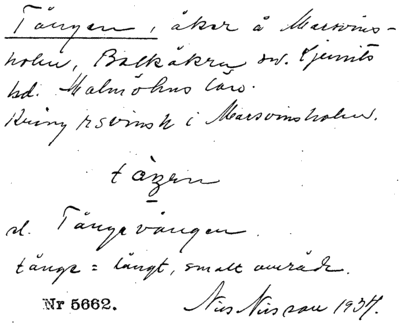 Tången, åker å Marsvins-
holm, Balkåkra sn. Ljunits
hd. Malmöhus län.
Kring marsvinsh i Marsvinsholm.
tåŋen
el. Tångavången.
tånga = långt, smalt område.
Nr 5662. Nils Nilsson 1934.